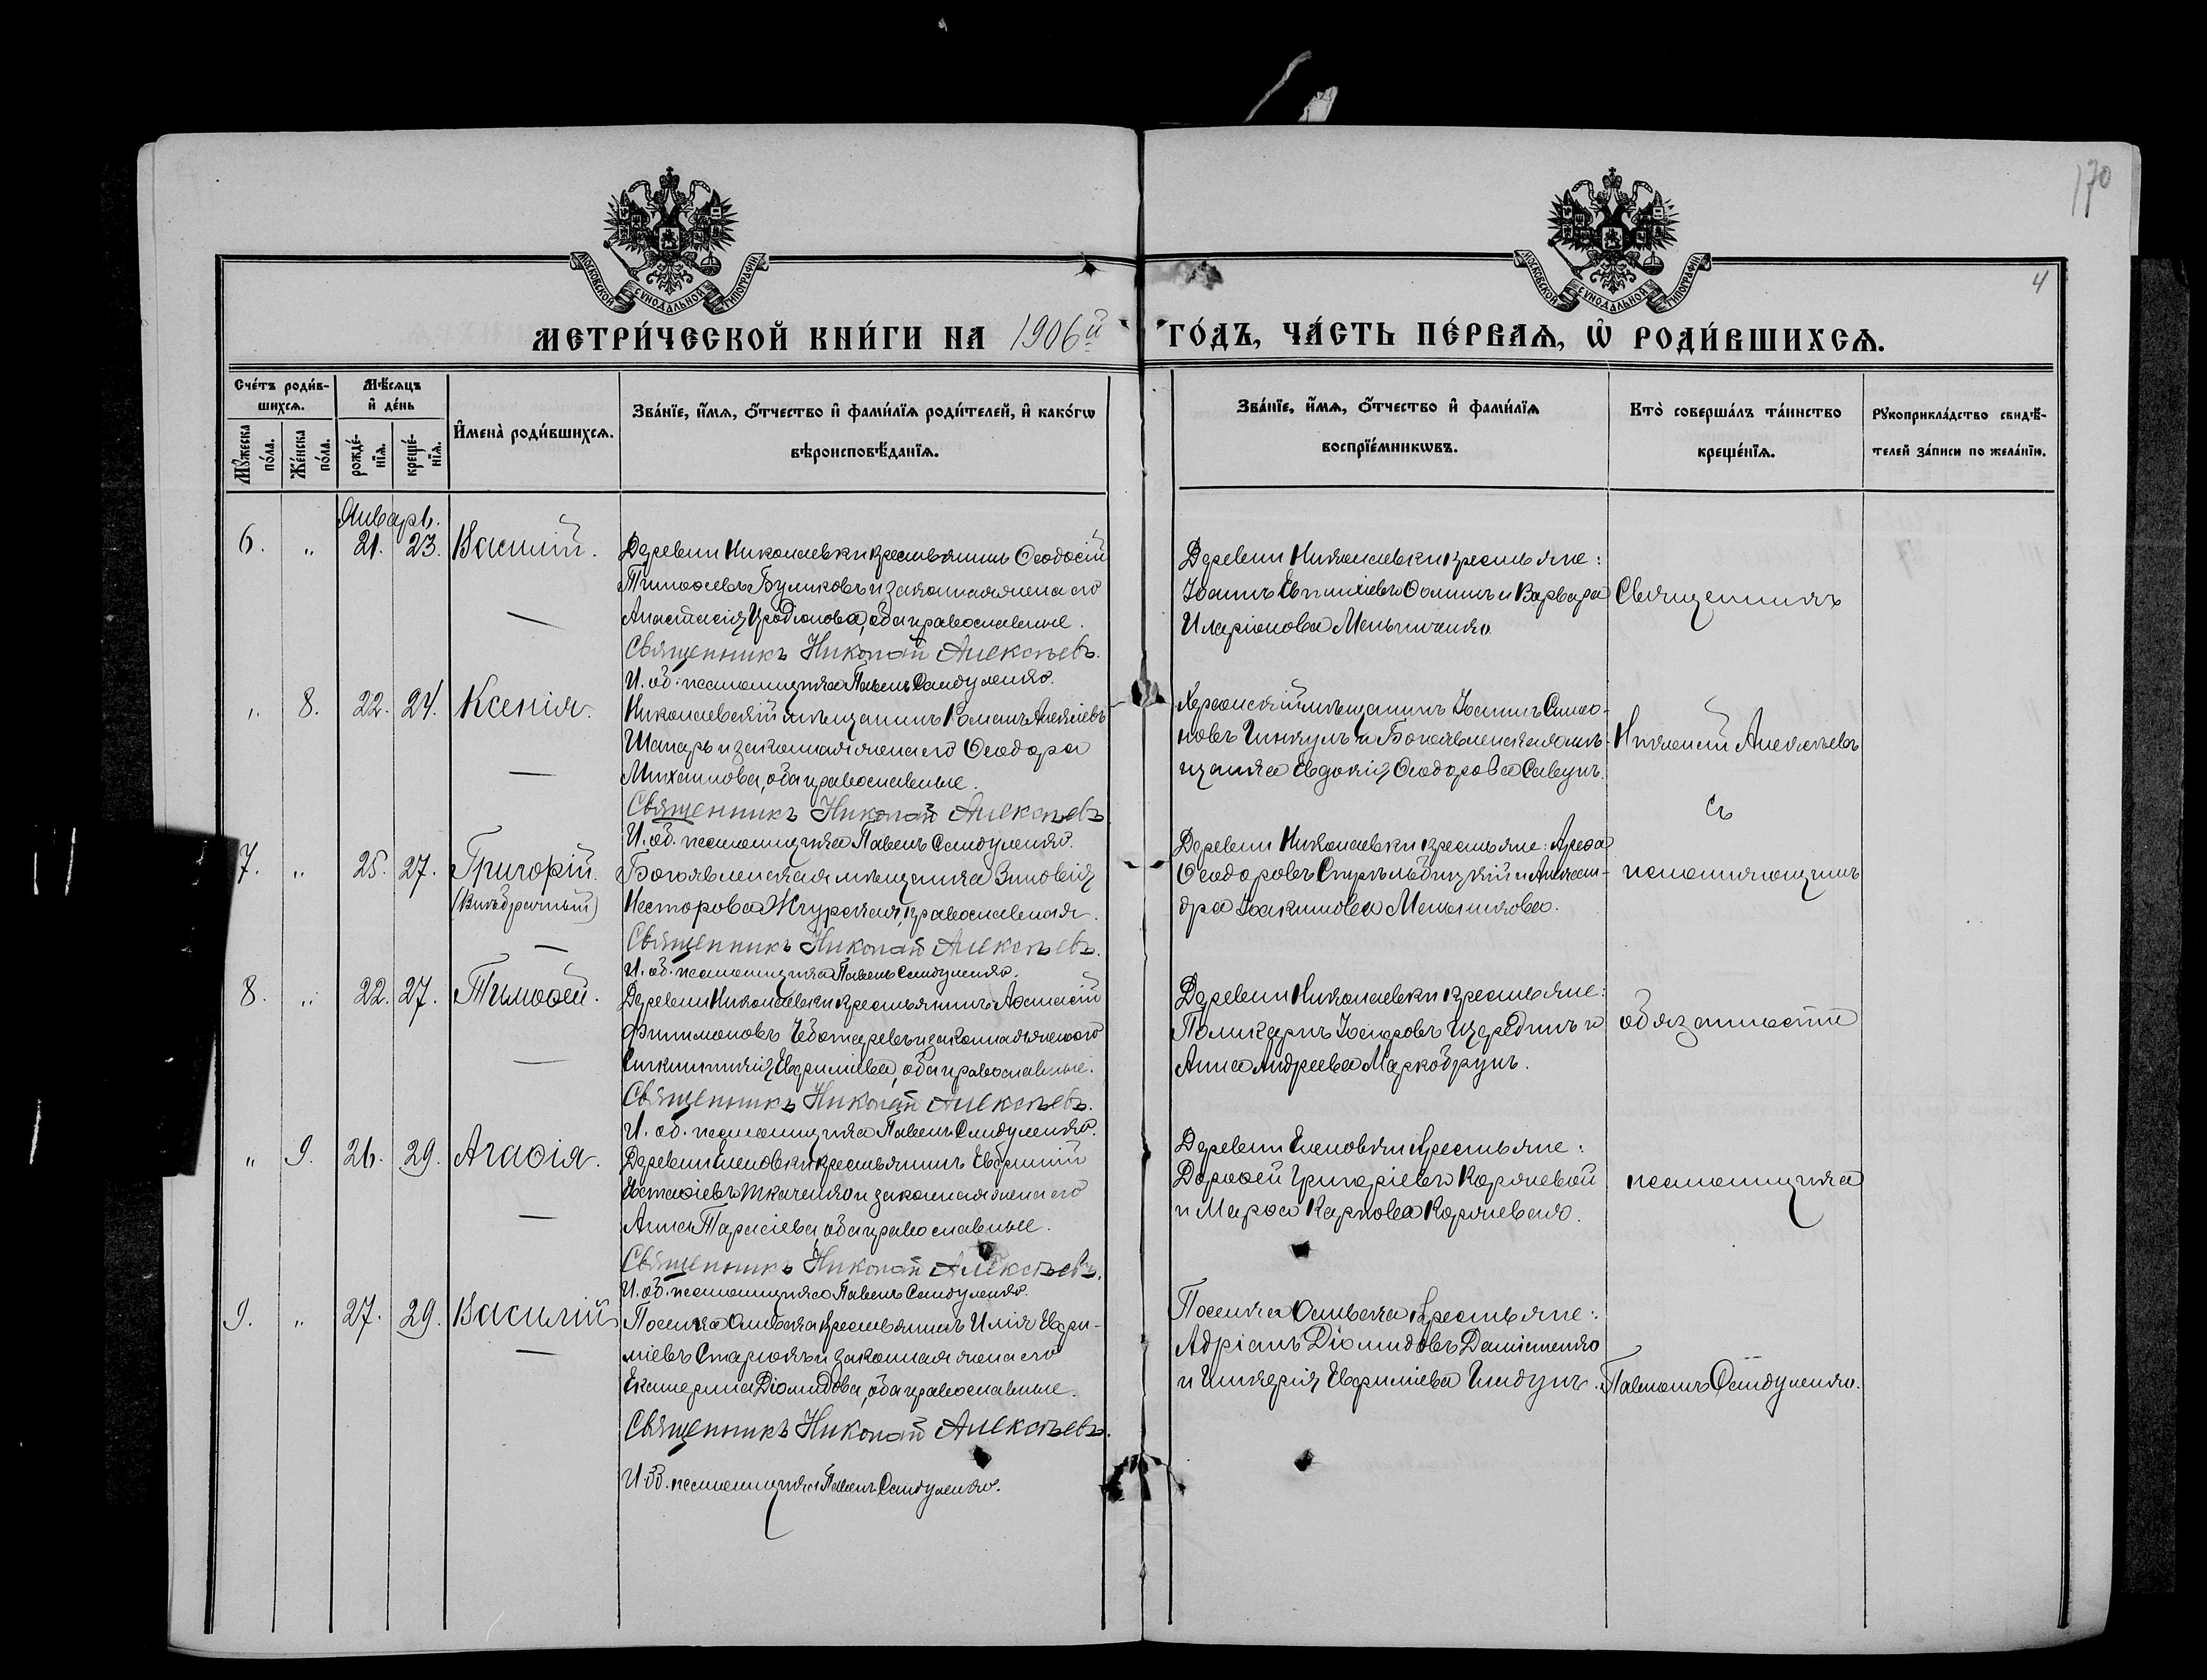 170
4
МОСКОВСКОЙ СУНОДАЛЬНОЙ ТИПОГРАФІИ
МОСКОВСКОЙ СУНОДАЛЬНОЙ ТИПОГРАФІИ
МЕТРИ́ЧЕСКОЙ КНИ́ГИ НА 1906й ГО́ДЪ, ЧА́СТЬ ПЕ́РВАѦ, Ѡ҆ РОДИ́ВШИХСѦ.
Сче́тъ роди́в-
шихсѧ.
Мѣ́сѧцъ
и҆ де́нь
Мꙋ́жеска
по́ла.
Же́нска
по́ла.
рожде́-
нїѧ.
креще́-
нїѧ.
И҆мена̀ роди́вшихсѧ.
Зва́нїе, и҆́мѧ, ѻ҆́тчество и҆ фами́лїѧ роди́телей, и҆ како́гѡ
вѣроисповѣ́данїѧ.
Зва́нїе, и҆́мѧ, ѻ҆́тчество и҆ фами́лїѧ
воспрїе́мникѡвъ.
Кто̀ соверша́лъ та́инство
креще́нїѧ.
Рꙋкоприкла́дство свидѣ́-
телей за́писи по жела́нїю.
Январь.
6. „ 21. 23. Василій.
Деревни Николаевки крестьянинъ Ѳеодосій
Тимоѳеевъ Буликовъ и законная жена его
Анастасія Иродіонова, оба православные.
Священникъ Николай Алексѣевъ.
И. об. псаломщика Павелъ Сандуленко.
Деревни Николаевки крестьяне:
Іоаннъ Евпиліевъ Ѳоминъ и Варвара
Иларіонова Мельниченко.
Священникъ
„ 8. 22. 24. Ксенія.
Николаевскій мѣщанинъ Романъ Алексіевъ
Шапарь и законная жена его Ѳеодора
Михаилова, оба православные.
Священникъ Николай Алексѣевъ
И. об. псаломщика Павелъ Сандуленко.
Херсонскій мѣщанинъ Іоаннъ Симео-
новъ Гинкулъ и Богоявленская мѣ-
щанка Евдокія Ѳеодорова Савунъ.
Николай Алексѣевъ
съ
7. „ 25. 27. Григорій.
(Внѣбрачный)
Богоявленская мѣщанка Зиновія
Несторова Жгурская, православная.
Священникъ Николай Алексѣевъ.
И. об. псаломщика Павелъ Сандуленко.
Деревни Николаевки крестьяне: Ареѳа
Ѳеодоровъ Стрѣльбицкій и Алексан-
дра Іоакимова Меньшикова.
исполняющимъ
8. „ 22. 27. Тимоѳей.
Деревни Николаевки крестьянинъ Аѳанасій
Филимоновъ Чеботаревъ и законная жена его
Синклитикія Евфиміева, оба православные.
Священникъ Николай Алексѣевъ.
И. об. псаломщика Павелъ Сандуленко.
Деревни Николаевки крестьяне:
Поликарпъ Щедринъ и
Анна Андреева Маркобрунъ.
обязанности
„ 9. 26. 29. Агаѳія.
Деревни Еленовки крестьянинъ Евфимій
Евстаѳіевъ Ткаченко и законная жена его
Анна Тарасіева, оба православные.
Священникъ Николай Алексѣевъ.
И. об. псаломщика Павелъ Сандуленко.
Деревни Еленовки крестьяне:
Дороѳей Григоріевъ Коржевой
и Марѳа Карпова Коржевая.
псаломщика
9. „ 27. 29. Василій
Поселка крестьянинъ Илія Евфи-
міевъ и законная жена его
Екатерина Діомидова, оба православные.
Священникъ Николай Алексѣевъ.
И. об. псаломщика Павелъ Сандуленко.
Поселка крестьяне:
Адріанъ Діомидовъ
и Гликерія Евфиміева
Павломъ Сандуленко.